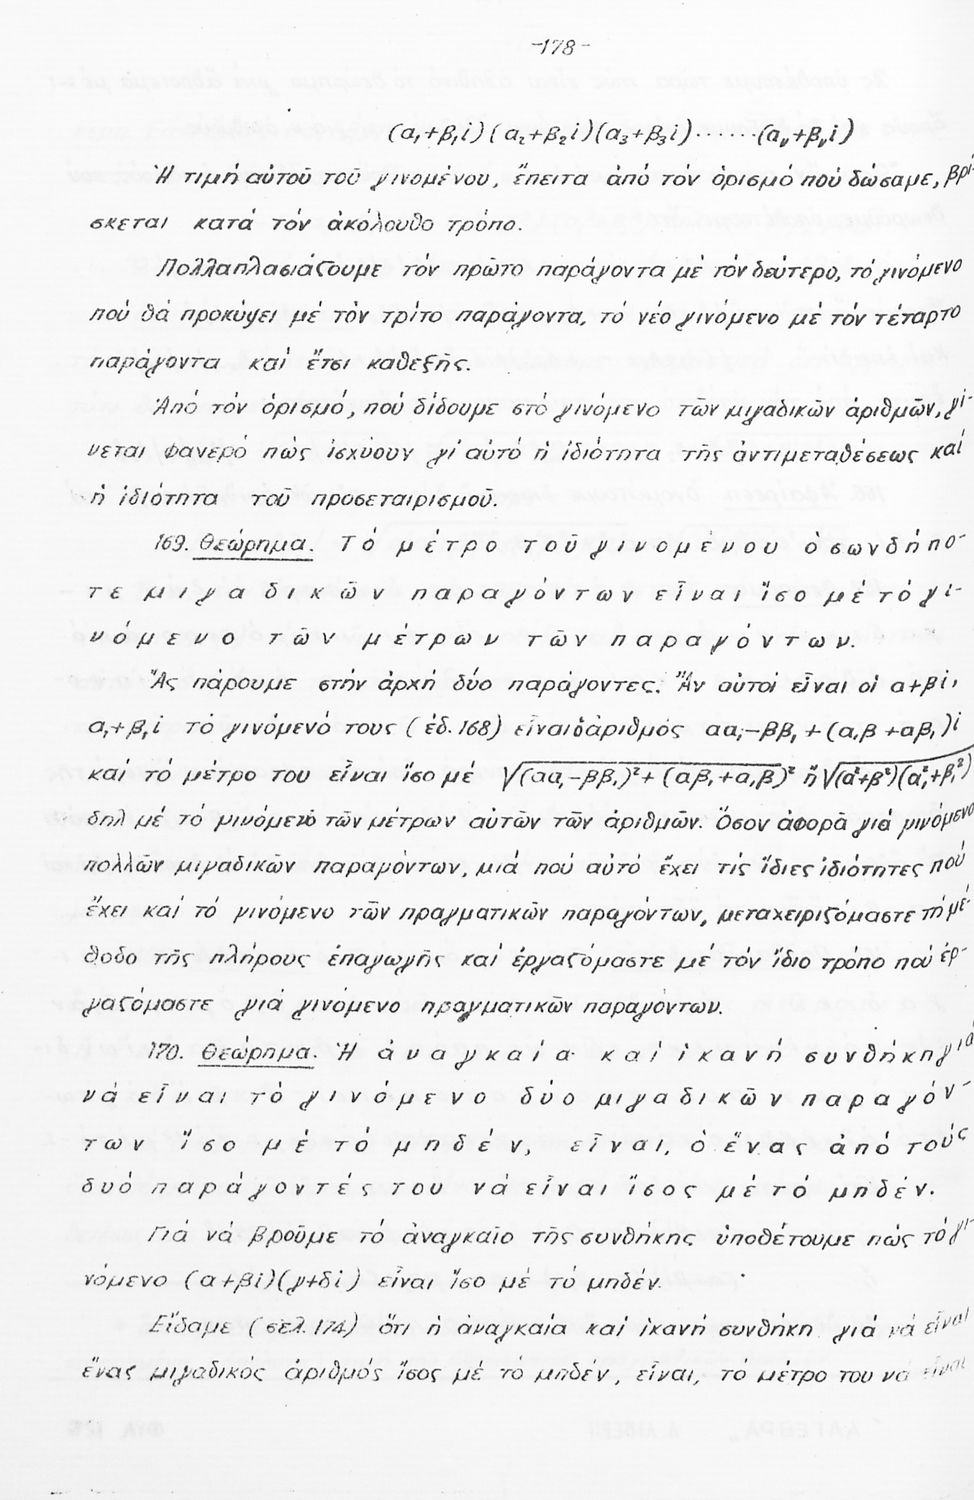 -178-
(α₁+β₁i)(α₂+β₂i)(α₃+β₃i)······(αᵥ+βᵥi)
Ἡ τιμή αὐτοῦ τοῦ γινομένου, ἔπειτα ἀπό τόν ὁρισμό πού δώσαμε, βρί-
σκεται κατά τόν ἀκόλουθο τρόπο.
Πολλαπλασιάζουμε τόν πρῶτο παράγοντα μέ τόν δεύτερο, τό γινόμενο
πού θά προκύψει μέ τόν τρίτο παράγοντα, τό νέο γινόμενο μέ τόν τέταρτο
παράγοντα καί ἔτσι καθεξῆς.
Ἀπό τόν ὁρισμό, πού δίδουμε στό γινόμενο τῶν μιγαδικῶν ἀριθμῶν, γί-
νεται φανερό πώς ἰσχύουν γι' αὐτό ἡ ἰδιότητα τῆς ἀντιμεταθέσεως καί
ἡ ἰδιότητα τοῦ προσεταιρισμοῦ.
169. Θεώρημα. Τό μέτρο τοῦ γινομένου ὁσωνδήπο-
τε μιγαδικῶν παραγόντων εἶναι ἴσο μέ τό γι-
νόμενο τῶν μέτρων τῶν παραγόντων.
Ἄς πάρουμε στήν ἀρχή δύο παράγοντες. Ἄν αὐτοί εἶναι οἱ α+βi,
α₁+β₁i τό γινόμενό τους (ἐδ. 168) εἶναι ὁ ἀριθμός αα₁-ββ₁+(α₁β+αβ₁)i
καί τό μέτρο του εἶναι ἴσο μέ √(αα₁-ββ₁)²+(αβ₁+α₁β)² ἤ √(α²+β²)(α₁²+β₁²)
δηλ μέ τό γινόμενο τῶν μέτρων αὐτῶν τῶν ἀριθμῶν. Ὅσον ἀφορᾶ γιά γινόμενο
πολλῶν μιγαδικῶν παραγόντων, μιά πού αὐτό ἔχει τίς ἴδιες ἰδιότητες πού
ἔχει καί τό γινόμενο τῶν πραγματικῶν παραγόντων, μεταχειριζόμαστε τή μέ-
θοδο τῆς πλήρους ἐπαγωγῆς καί ἐργαζόμαστε μέ τόν ἴδιο τρόπο πού ἐρ-
γαζόμαστε γιά γινόμενο πραγματικῶν παραγόντων.
170. Θεώρημα. Ἡ ἀναγκαία καί ἱκανή συνθήκη γιά
νά εἶναι τό γινόμενο δύο μιγαδικῶν παραγόν-
των ἴσο μέ τό μηδέν, εἶναι, ὁ ἕνας ἀπό τούς
δυό παράγοντές του νά εἶναι ἴσος μέ τό μηδέν.
Γιά νά βροῦμε τό ἀναγκαῖο τῆς συνθήκης ὑποθέτουμε πώς τό γι-
νόμενο (α+βi)(γ+δi) εἶναι ἴσο μέ τό μηδέν.
Εἴδαμε (σελ. 174) ὅτι ἡ ἀναγκαία καί ἱκανή συνθήκη γιά νά εἶναι
ἕνας μιγαδικός ἀριθμός ἴσος μέ τό μηδέν, εἶναι, τό μέτρο του νά εἶναι